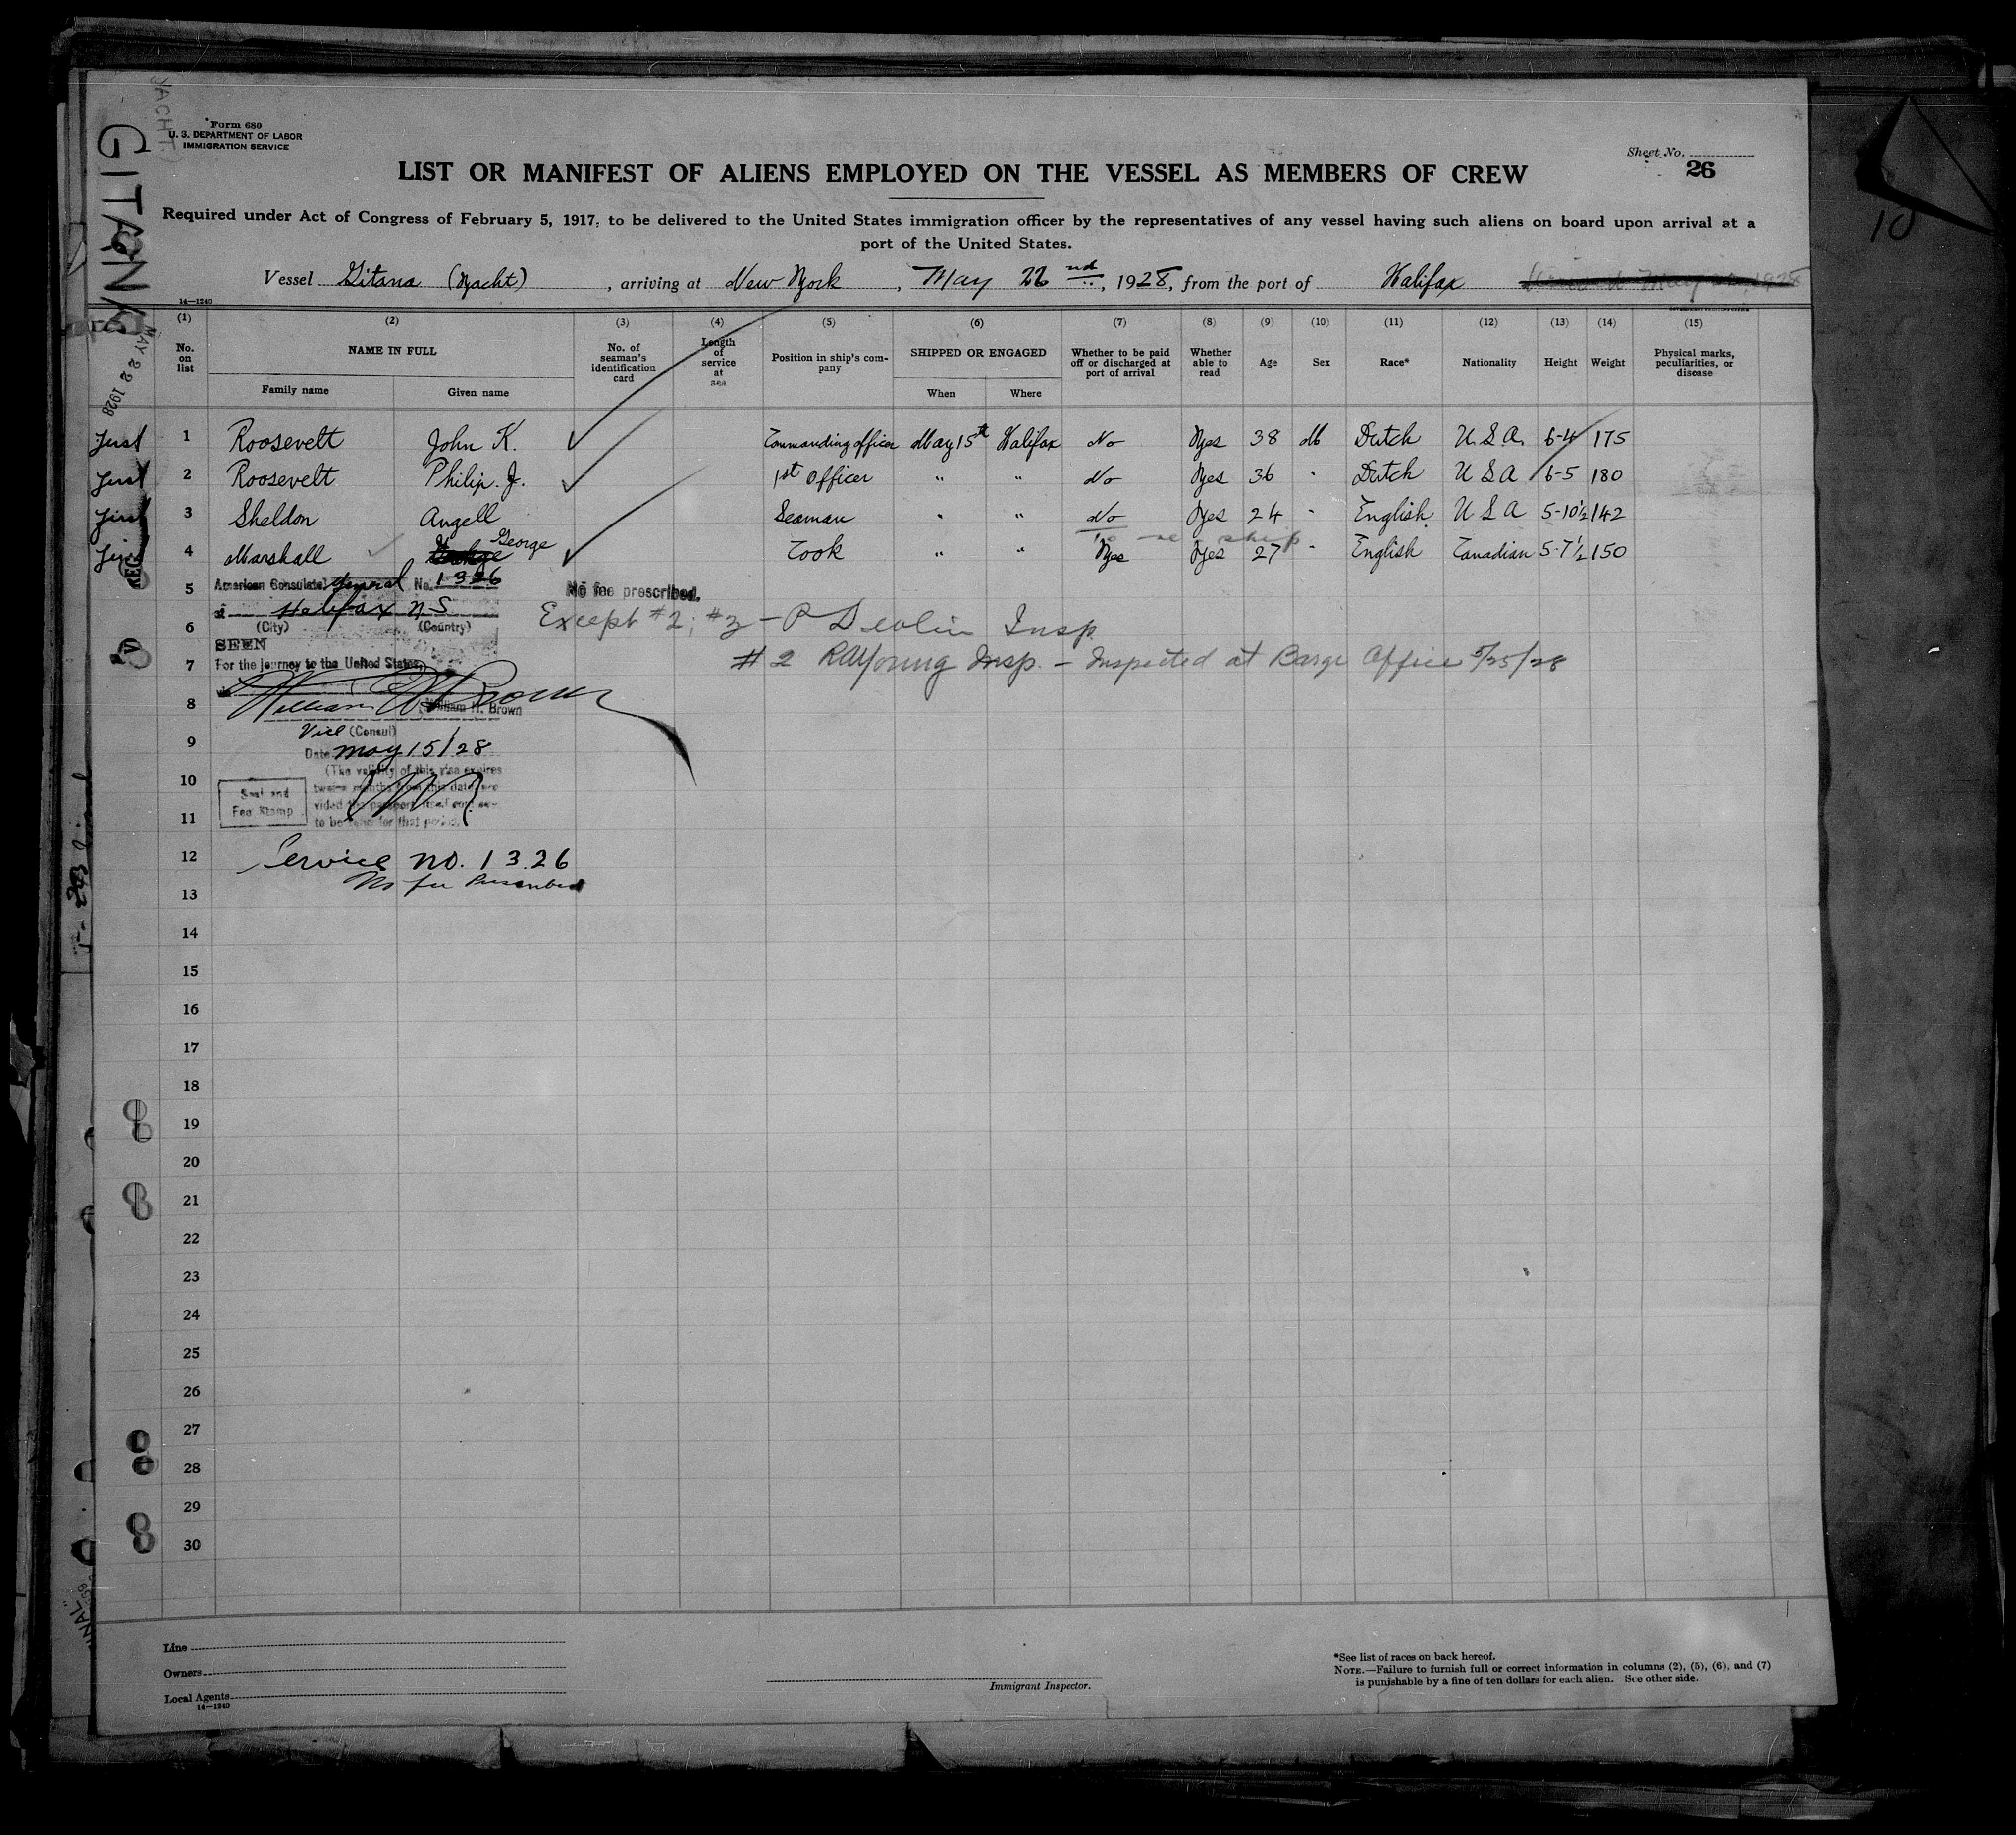 Form 680
U. S. DEPARTMENT OF LABOR
IMMIGRATION SERVICE
(YACHT)
GITANA
MAY 22 1928
Sheet No.
26
10
LIST OR MANIFEST OF ALIENS EMPLOYED ON THE VESSEL AS MEMBERS OF CREW
Required under Act of Congress of February 5, 1917, to be delivered to the United States immigration officer by the representatives of any vessel having such aliens on board upon arrival at a
port of the United States.
Vessel Gitana (Yacht), arriving at New York, May 22nd, 1928, from the port of Halifax
14—1240
(1) (2) (3) (4) (5) (6) (7) (8) (9) (10) (11) (12) (13) (14) (15)
No. on list
NAME IN FULL
Family name
Given name
No. of seaman's identification card
Length of service at sea
Position in ship's company
SHIPPED OR ENGAGED
When
Where
Whether to be paid off or discharged at port of arrival
Whether able to read
Age
Sex
Race*
Nationality
Height
Weight
Physical marks, peculiarities, or disease
first 1 Roosevelt John K. Commanding officer May 15th Halifax No Yes 38 M Dutch U.S.A. 6-4 175
first 2 Roosevelt Philip. J. 1st Officer " " No Yes 36 " Dutch U S A 6-5 180
first 3 Sheldon Angell Seaman " " No Yes 24 " English U S A 5-10½ 142
first 4 Marshall George Cook " " Yes Yes 27 " English Canadian 5-7½ 150
5 American Consulate General No. 1326
No fee prescribed.
at Halifax N.S
6 (City) (Country)
Except #2; #3 - P Devlin Insp
SEEN
7 For the journey to the United States,
#2 RA Young Insp. - Inspected at Barge Office 5/25/28
8 William H. Brown
Vice (Consul)
9 Date May 15/28
(The validity of this visa expires
10 twelve months from this date, pro-
11 vided the passport itself con-
to be valid for that period.)
Seal and
Fee Stamp
12 Service No. 1326
No fee Prescribed
13
14
15
16
17
18
19
20
21
22
23
24
25
26
27
28
29
30
Line
Owners
Local Agents
14—1240
Immigrant Inspector.
*See list of races on back hereof.
NOTE.—Failure to furnish full or correct information in columns (2), (5), (6), and (7)
is punishable by a fine of ten dollars for each alien. See other side.